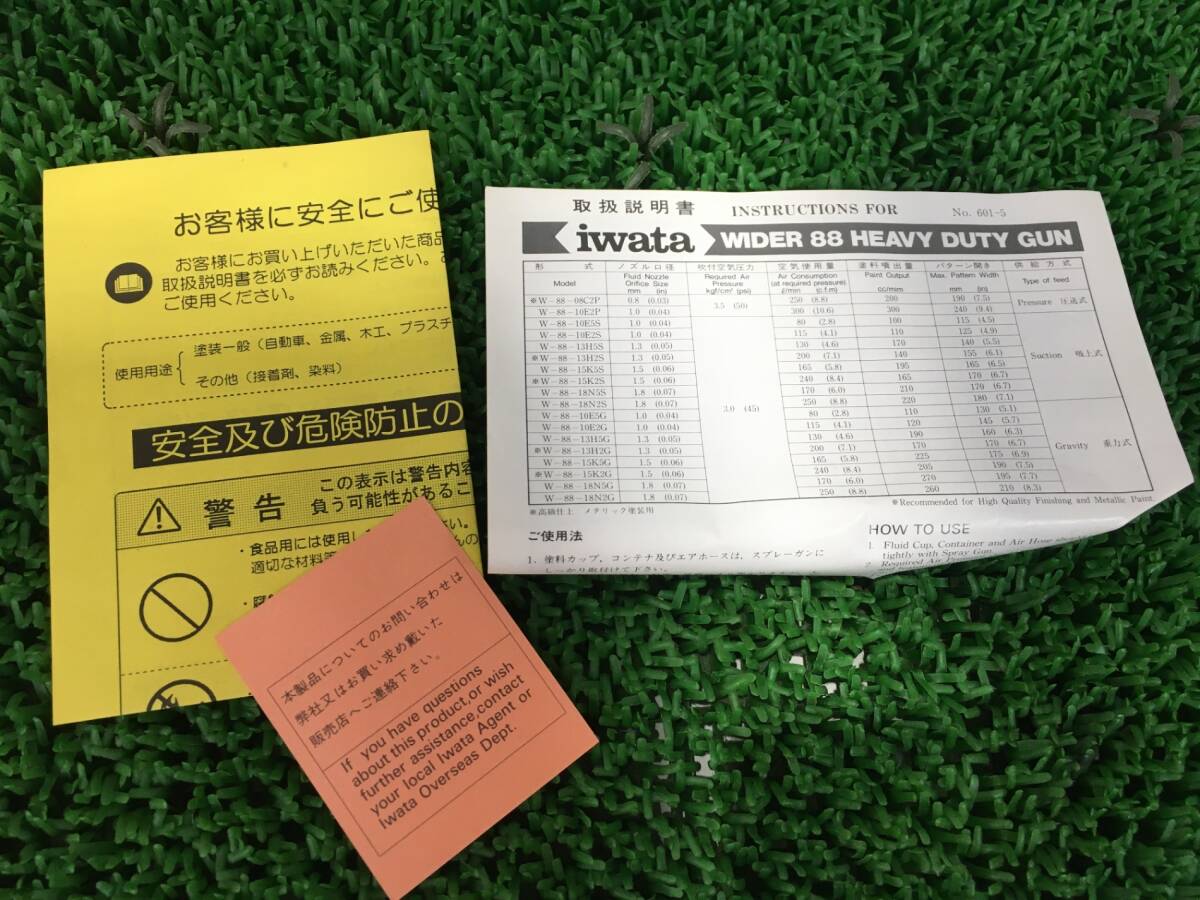 お客様に安全にご使
お客様にお買い上げいただいた商品
取扱説明書を必ずお読みください。お
ご使用ください。
使用用途
塗装一般（自動車、金属、木工、プラスチ
その他（接着剤、染料）
安全及び危険防止の
警告
この表示は警告内容
負う可能性があるこ
・食品用には使用し
適切な材料等
本製品についてのお問い合わせは
弊社又はお買い求め戴いた
販売店へご連絡下さい。
If you have questions
about this product,or wish
further assistance,contact
your local Iwata Agent or
Iwata Overseas Dept.
取扱説明書 INSTRUCTIONS FOR No. 601-5
iwata WIDER 88 HEAVY DUTY GUN
形式 ノズル口径 吹付空気圧力 空気使用量 塗料噴出量 パターン開き 供給方式
Model Fluid Nozzle Orifice Size mm (in) Required Air Pressure kgf/cm² (psi) Air Consumption (at required pressure) ℓ/min (c.f.m) Paint Output cc/min Max. Pattern Width mm (in) Type of feed
※W-88-08C2P 0.8 (0.03) 3.5 (50) 250 (8.8) 200 190 (7.5) Pressure 圧送式
W-88-10E2P 1.0 (0.04) 300 (10.6) 300 240 (9.4)
W-88-10E5S 1.0 (0.04) 3.0 (45) 80 (2.8) 100 115 (4.5) Suction 吸上式
W-88-10E2S 1.0 (0.04) 115 (4.1) 110 125 (4.9)
W-88-13H5S 1.3 (0.05) 130 (4.6) 170 140 (5.5)
※W-88-13H2S 1.3 (0.05) 200 (7.1) 140 155 (6.1)
W-88-15K5S 1.5 (0.06) 165 (5.8) 195 165 (6.5)
※W-88-15K2S 1.5 (0.06) 240 (8.4) 165 170 (6.7)
W-88-18N5S 1.8 (0.07) 170 (6.0) 210 170 (6.7)
W-88-18N2S 1.8 (0.07) 250 (8.8) 220 180 (7.1)
W-88-10E5G 1.0 (0.04) 80 (2.8) 110 130 (5.1) Gravity 重力式
W-88-10E2G 1.0 (0.04) 115 (4.1) 120 145 (5.7)
W-88-13H5G 1.3 (0.05) 130 (4.6) 190 160 (6.3)
※W-88-13H2G 1.3 (0.05) 200 (7.1) 170 170 (6.7)
W-88-15K5G 1.5 (0.06) 165 (5.8) 225 175 (6.9)
※W-88-15K2G 1.5 (0.06) 240 (8.4) 205 190 (7.5)
W-88-18N5G 1.8 (0.07) 170 (6.0) 270 195 (7.7)
W-88-18N2G 1.8 (0.07) 250 (8.8) 260 210 (8.3)
※高級仕上 メタリック塗装用
※Recommended for High Quality Finishing and Metallic Paint.
ご使用法
1、塗料カップ，コンテナ及びエアホースは，スプレーガンに
しっかり取付けて下さい。
HOW TO USE
1. Fluid Cup, Container and Air Hose
tightly with Spray Gun.
2. Required Air